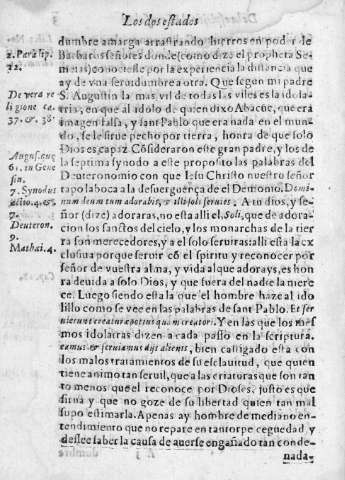 Los dos estados
dumbre amarga arrastrando hierros en poder de
2. Paralip.
12.
Barbaros señores donde (como dize el propheta Se
meias) conociesse por la experiencia la distancia que
ay de vna seruidumbre a otra. Que segun mi padre
S. Augustin la mas vil de todas las viles es la idola-
De vera re
ligione ca.
37. & 38.
tria, en que al idolo de quien dixo Abacuc, que era
imagen falsa, y sant Pablo que era nada en el mun-
do, se le sirue pecho por tierra, honra de que solo
Dios es capaz Cōsideraron este gran padre, y los de
August. quę
61. in Gene
sin.
7. Synodus
la septima synodo a este proposito las palabras del
Deuteronomio con que Iesu Christo nuestro señor
tapo la boca a la desuerguença de el Demonio. Domi-
num deum tuum adorabis, & illi soli seruies. A tu dios, y se-
7.
Deuteron.
9.
Mathai. 4.
ñor (dize) adoraras, no esta alli el, Soli, que de adora-
cion los sanctos del cielo, y los monarchas de la tier
ra son merecedores, y a el solo seruiras: alli esta la ex
clusiua porque seruir cō el spiritu y reconocer por
señor de vuestra alma, y vida al que adorays, es hon
ra deuida a solo Dios, y que fuera del nadie la mere
ce. Luego siendo esta la que el hombre haze al ido
lillo como se vee en las palabras de sant Pablo. Et ser
uierunt creaturæ potius quam creatori. Y en las que los mes
mos idolatras dizen a cada passo en la scriptura.
eamus & seruiamus dijs alienis, bien castigado esta con
los malos tratamientos de su esclauitud, que quien
tiene animo tan seruil, que a las criaturas que son tan
to menos que el reconoce por Dioses, justo es que
sirua y que no goze de su libertad quien tan mal
supo estimarla. Apenas ay hombre de mediano en-
tendimiento que no repare en tan torpe ceguedad, y
dessee saber la causa de auerse engañado tan conde-
nada-